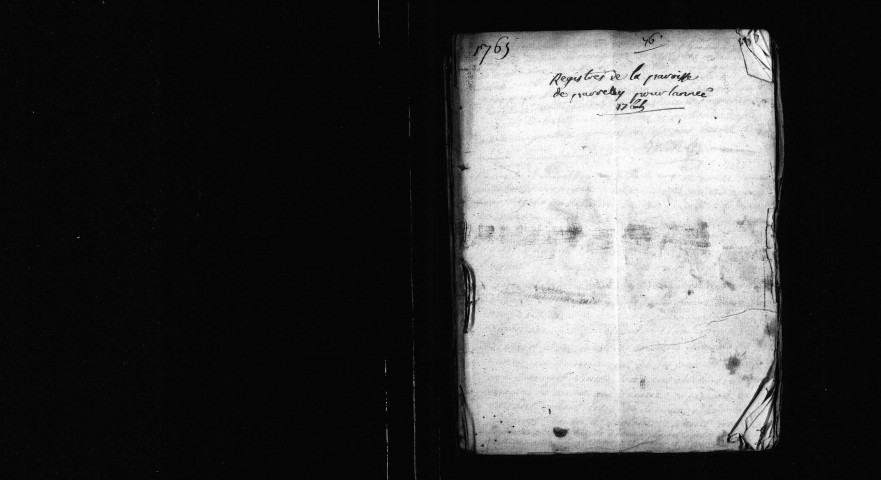 1765
76
Registres de la paroisse
de pour lanneé
1765